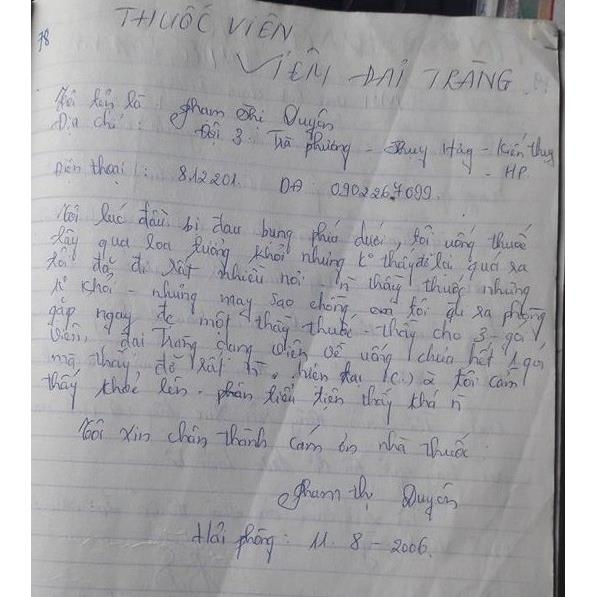 78
THUỐC VIÊN
VIÊM ĐẠI TRÀNG
Tôi tên là : Phạm Thị Duyên
Địa chỉ : Đội 3 : Trà phương - Thuỵ Hương - Kiến thuỵ
- HP.
Điện thoại : 812201. DĐ : 0902267099.
Tôi lúc đầu bị đau bụng phía dưới, tôi uống thuốc
tây qua loa tưởng khỏi nhưng k° thấy đỡ lại quá ra
tôi đã đi rất nhiều nơi - n thầy thuốc nhưng
k° khỏi - nhưng may sao chồng tôi đi ra phòng
gặp ngay đc một thầy thuốc - thầy cho 3 gói
viên, đại tràng dạng viên về uống chưa hết 1 gói
mà thấy đỡ rất n, hiện tại (c) à tôi cảm
thấy khoẻ lên - tiểu tiện thấy khá n
Tôi xin chân thành cám ơn nhà thuốc
Phạm thị Duyên
Hải phòng : 11 . 8 - 2006.